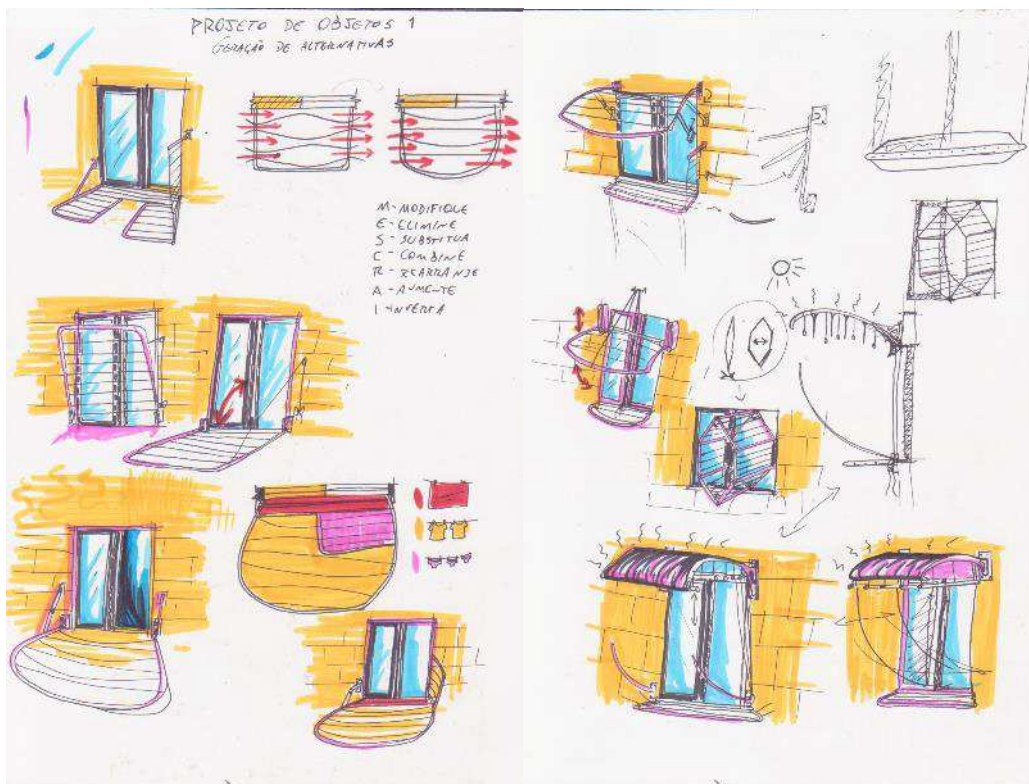 PROJETO DE OBJETOS 1
GERAÇÃO DE ALTERNATIVAS
M-MODIFIQUE
E-ELIMINE
S-SUBSTITUA
C-COMBINE
R-REARRANJE
A-AUMENTE
I-INVERTA